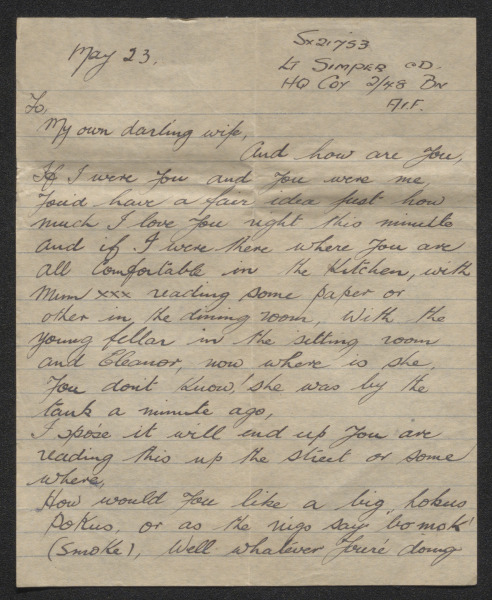 May 23.
SX21753
Lt SIMPER CD.
HQ COY 2/48 BN
A.I.F.
To,
My own darling wife,
And how are You,
If I were You and You were me
You'd have a fair idea just how
much I love You right this minute
and if I were there where You are
all comfortable in the Kitchen, with
Mum xxx reading some paper or
other in the dining room, With the
young fellar in the sitting room
and Eleanor, now where is she,
You don't Know! she was by the
tank a minute ago,
I spose it will end up You are
reading this up the street or some
where,
How would You like a big hokus
Pokus, or as the nigs say 'bomok'
(Smoke), Well whatever You're doing